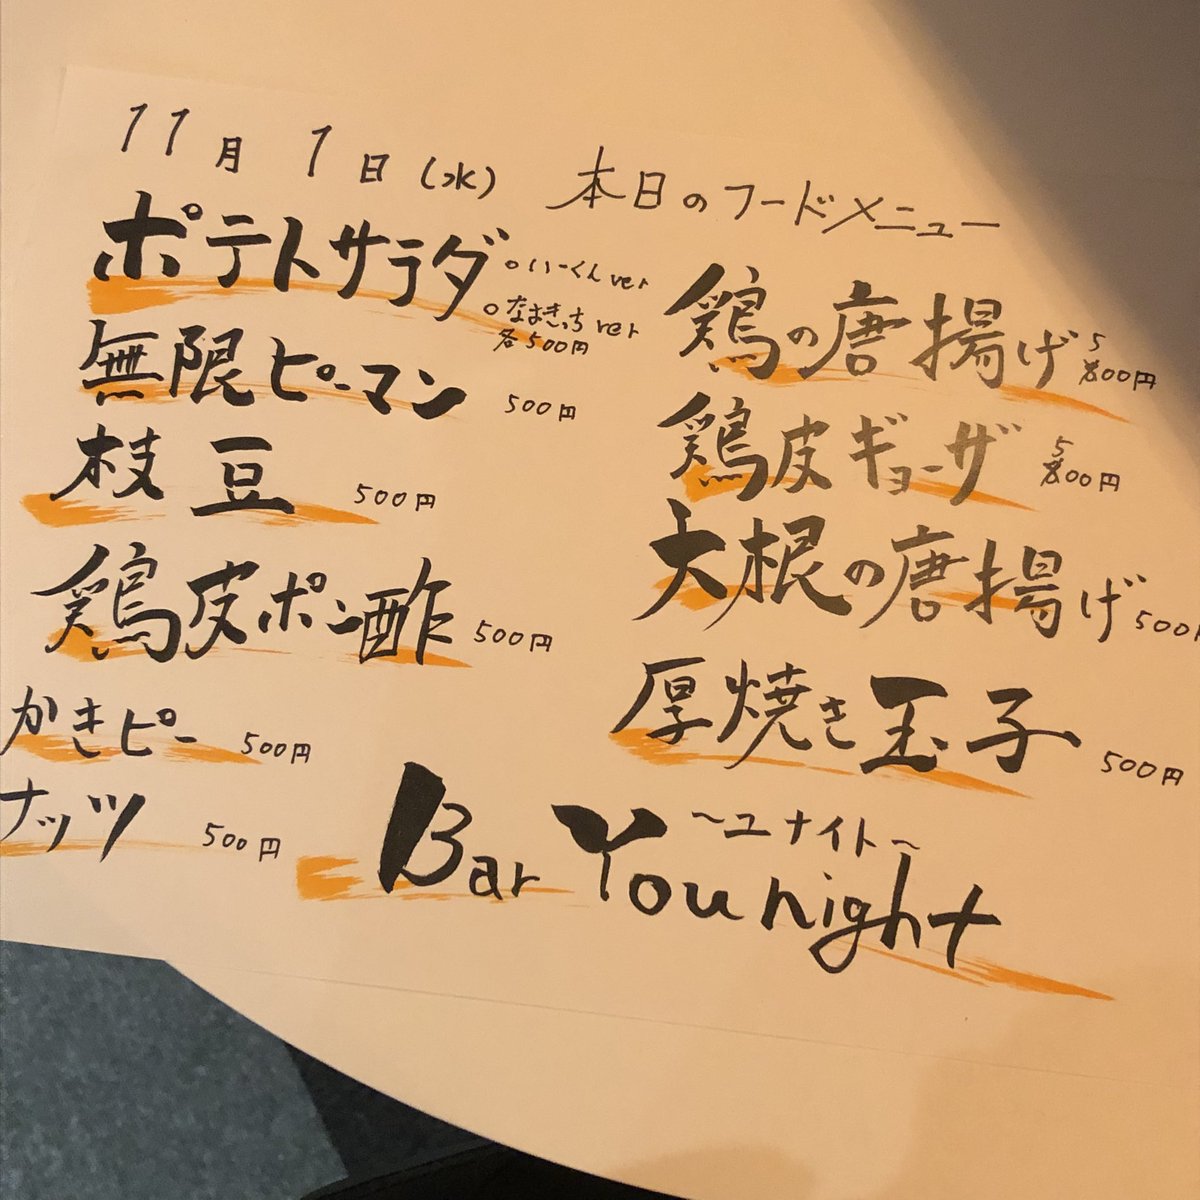 11月1日(水) 本日のフードメニュー
ポテトサラダ
。いーくんver
。なおきっちver
各500円
無限ピーマン 500円
枝豆 500円
鶏皮ポン酢 500円
かきピー 500円
ナッツ 500円
鶏の唐揚げ 500円
鶏皮ギョーザ 500円
大根の唐揚げ 500円
厚焼き玉子 500円
~ユナイト~
Bar You night